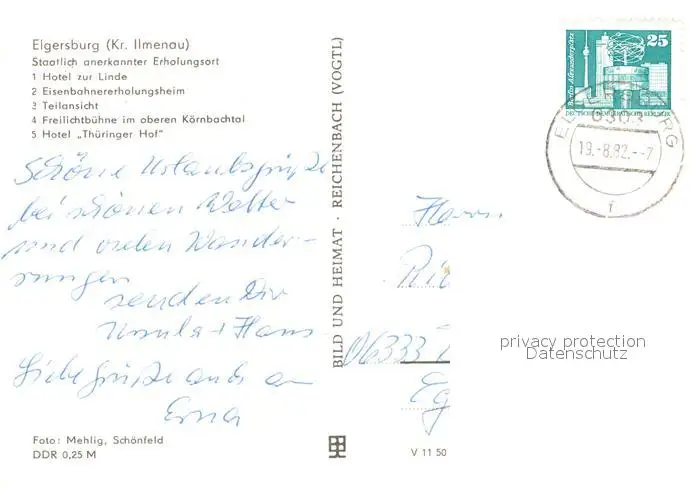 Elgersburg (Kr. Ilmenau)
Staatlich anerkannter Erholungsort
1 Hotel zur Linde
2 Eisenbahnererholungsheim
3 Teilansicht
4 Freilichtbühne im oberen Körnbachtal
5 Hotel „Thüringer Hof"
Schöne Urlaubsgrüße
bei schönen Wetter
und vielen Wander-
rungen
senden Dir
Ursula + Hans
Liebe Grüße auch an
Erna
Foto: Mehlig, Schönfeld
DDR 0,25 M
BILD UND HEIMAT · REICHENBACH (VOGTL)
V 11 50
Berlin, Alexanderplatz
25
DEUTSCHE DEMOKRATISCHE REPUBLIK
ELGERSBURG
6303
19.-8.82.--7
f
Herrn
06333
privacy protection
Datenschutz